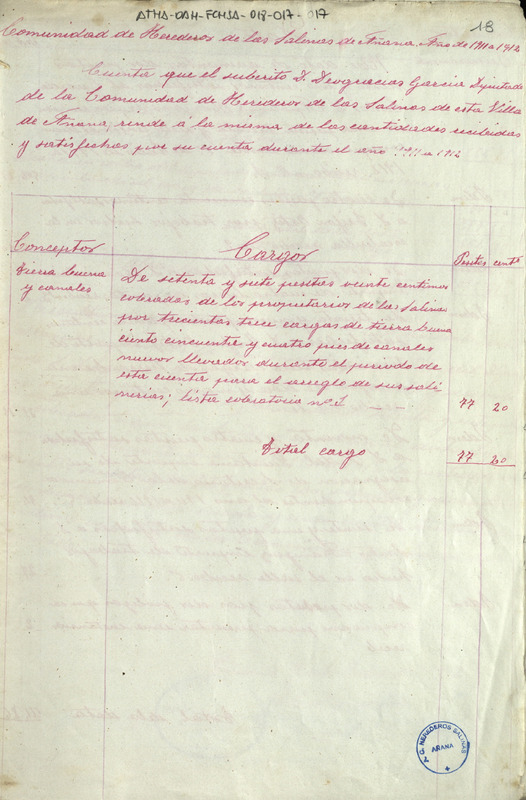 ATHA-DAH-FCHSA-018-017-017
18
Comunidad de Herederos de las Salinas de Añana. Año de 1911 a 1912
Cuenta que el subcrito D. Deogracias Garcia Diputado
de la Comunidad de Herederos de las Salinas de esta Villa
de Añana, rinde á la misma de las cantidades recibidas
y satisfechas por su cuenta durante el año 1911 a 1912
Conceptos Cargos Pesetas cents
Tierra buena
y canales
De setenta y siete pesetas veinte centimos
cobradas de los propietarios de las Salinas
por trecientas trece cargas de tierra buena
ciento cincuenta y cuatro pies de canales
nuevos llevados durante el periodo de
esta cuenta para el arreglo de sus sali
nerias; lista cobratoria nº 1 77 20
Total cargo 77 20
G. HEREDEROS SALINAS
AÑANA